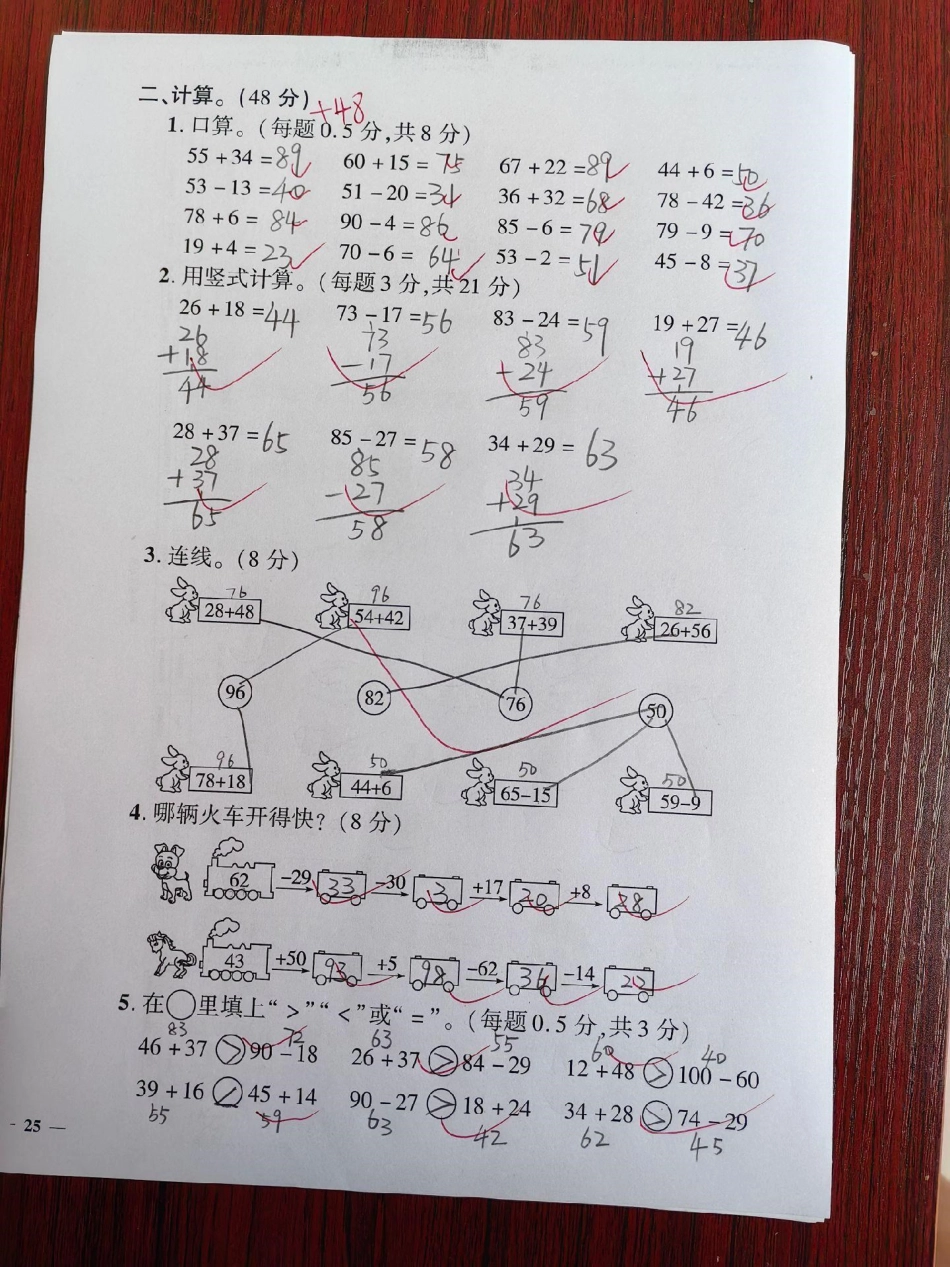 二、计算。(48 分) +48
1. 口算。(每题 0.5 分,共 8 分)
55 + 34 = 89 60 + 15 = 75 67 + 22 = 89 44 + 6 = 50
53 - 13 = 40 51 - 20 = 31 36 + 32 = 68 78 - 42 = 36
78 + 6 = 84 90 - 4 = 86 85 - 6 = 79 79 - 9 = 70
19 + 4 = 23 70 - 6 = 64 53 - 2 = 51 45 - 8 = 37
2. 用竖式计算。(每题 3 分,共 21 分)
26 + 18 = 44 73 - 17 = 56 83 - 24 = 59 19 + 27 = 46
26 73 83 19
+ 18 - 17 + 24 + 27
44 56 59 46
28 + 37 = 65 85 - 27 = 58 34 + 29 = 63
28 85 34
+ 37 - 27 + 29
65 58 63
3. 连线。(8 分)
76 96 76 82
28+48 54+42 37+39 26+56
96 82 76 50
96 50 50 50
78+18 44+6 65-15 59-9
4. 哪辆火车开得快? (8 分)
62 -29 33 -30 3 +17 20 +8 28
43 +50 93 +5 98 -62 36 -14 22
5. 在○里填上“ > ”“ < ”或“ = ”。(每题 0.5 分,共 3 分)
83 72 63 55 60 40
46 + 37 > 90 - 18 26 + 37 > 84 - 29 12 + 48 > 100 - 60
39 + 16 < 45 + 14 90 - 27 > 18 + 24 34 + 28 > 74 - 29
55 59 63 42 62 45
- 25 —